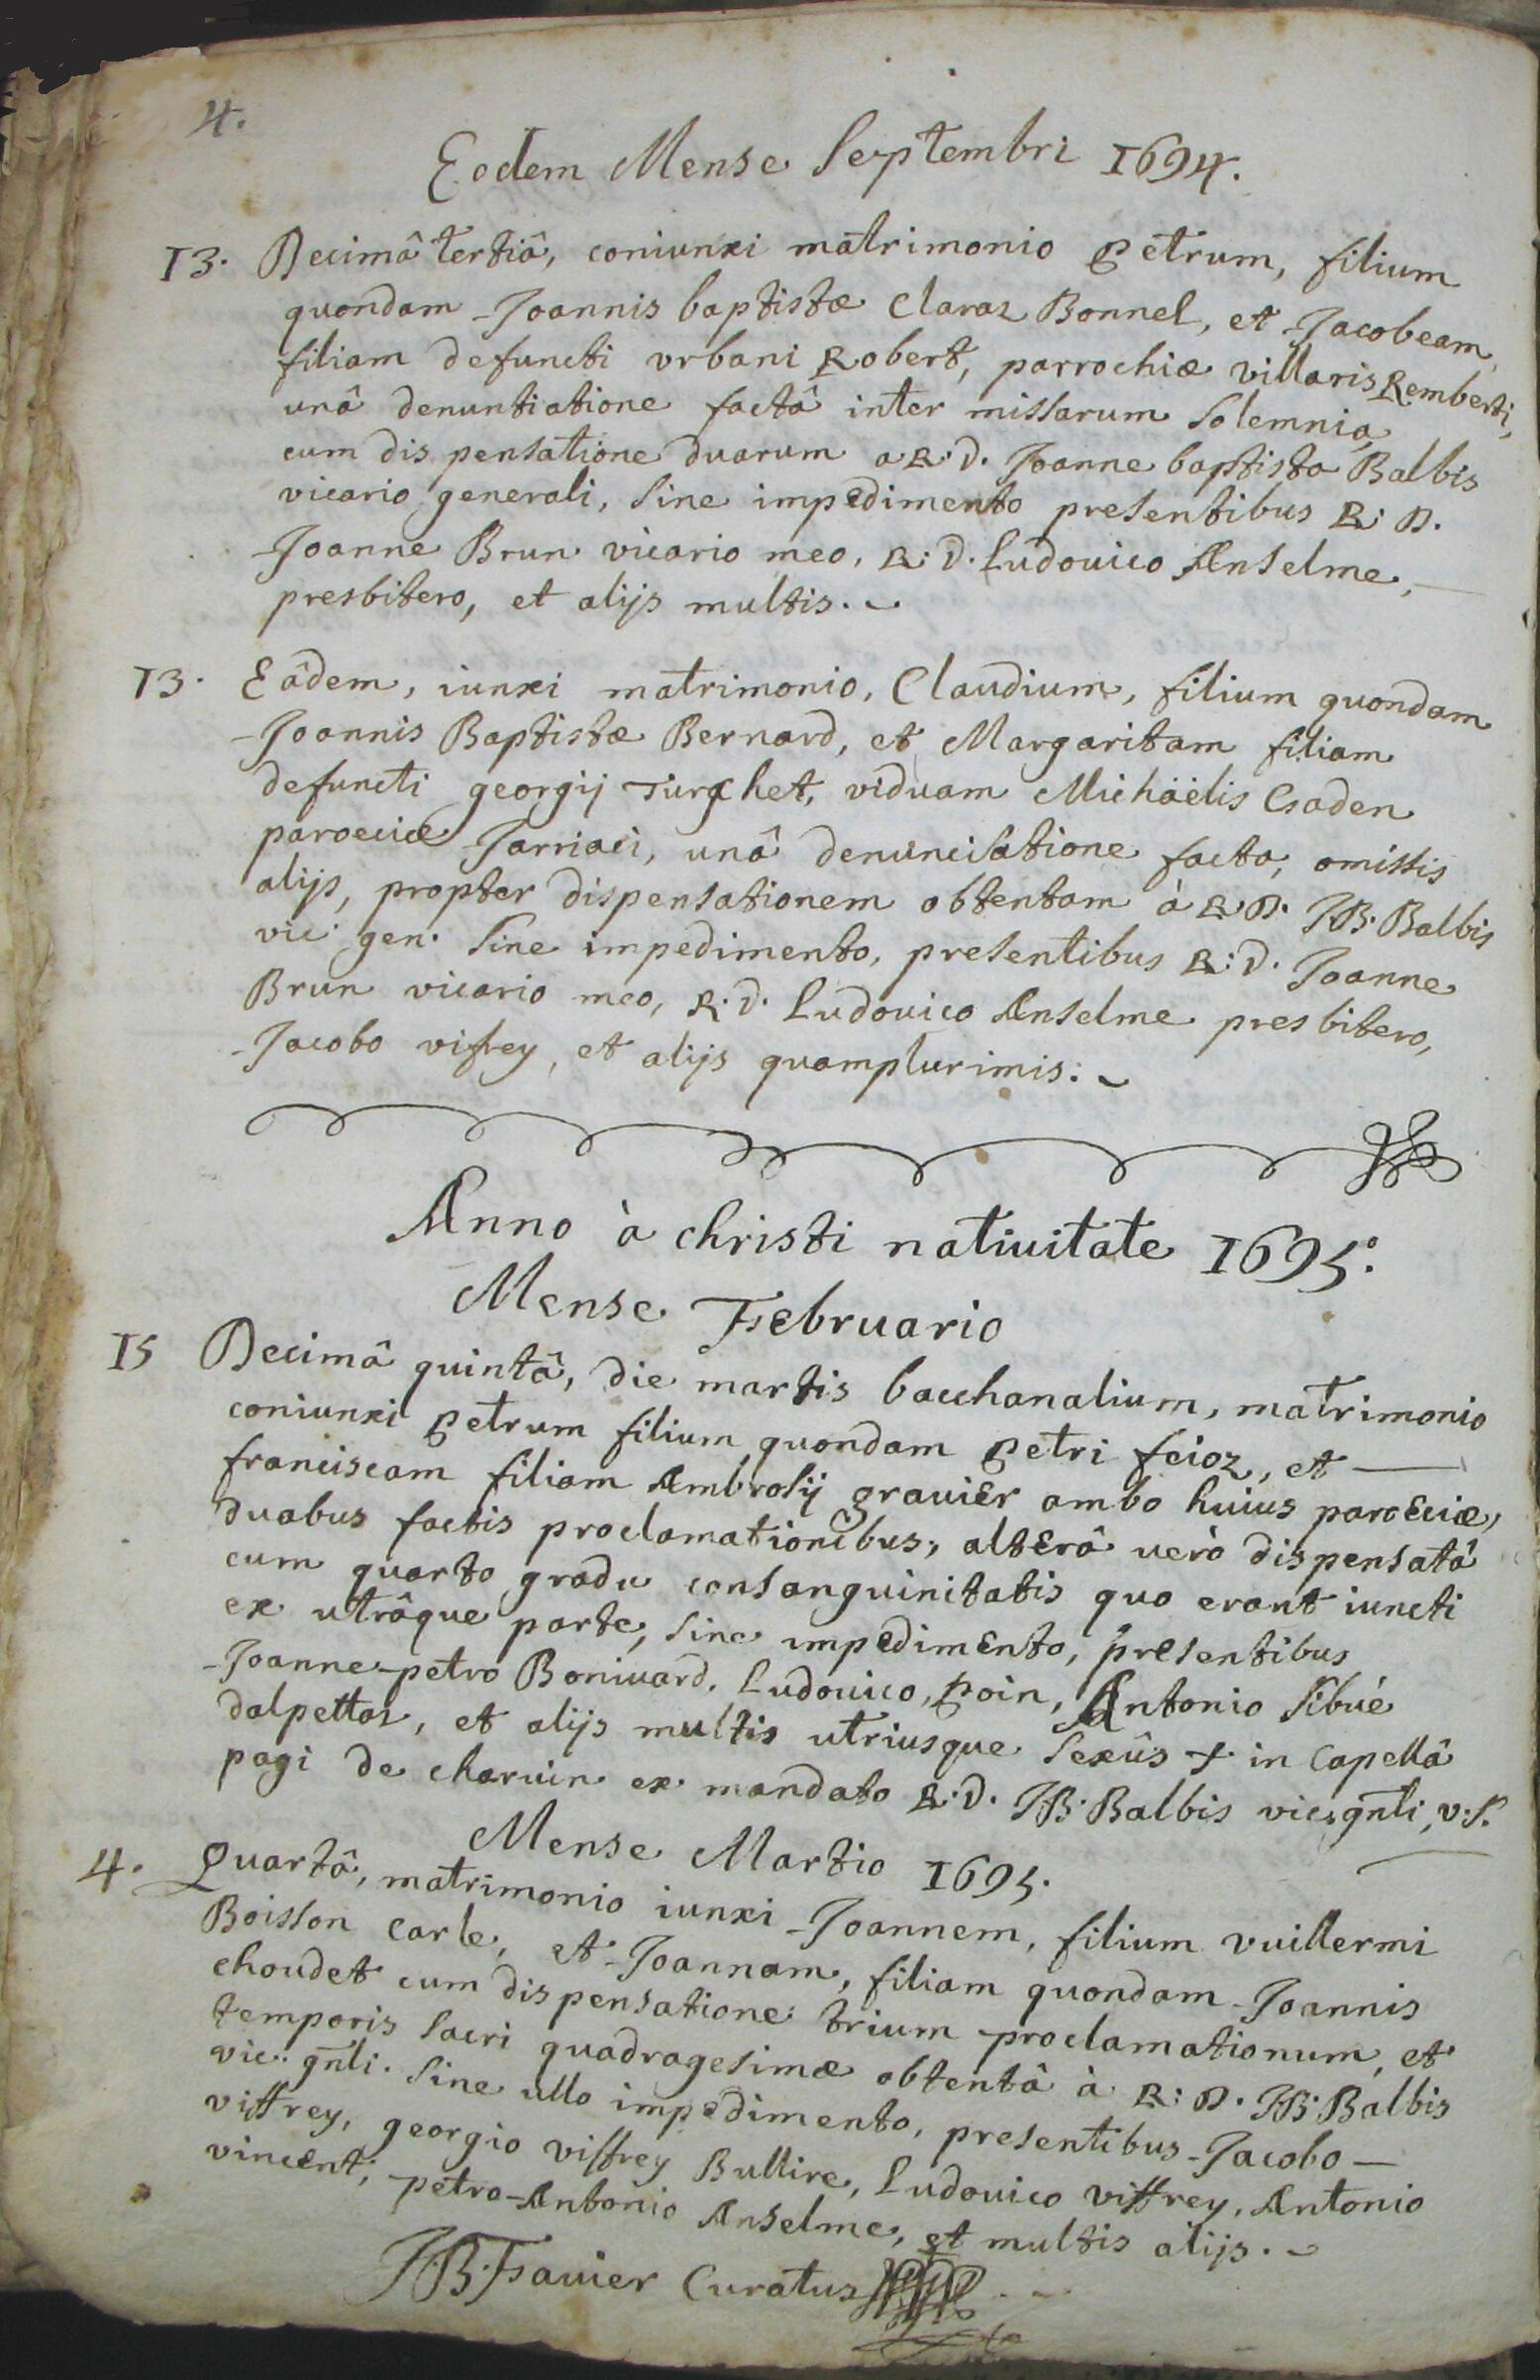 4.
Eodem Mense Septembri 1694.
13. Decimâ tertiâ, coniunxi matrimonio Petrum, filium
quondam Joannis baptistæ Claraz Bonnel, et Jacobeam
filiam defuncti vrbani Robert, parrochiæ villaris Remberti,
unâ denuntiatione factâ inter missarum solemnia,
cum dispensatione duarum a R: D. Joanne baptista Balbis
vicario generali, sine impedimento presentibus R: D.
Joanne Brun vicario meo, R: D. Ludouico Anselme,
presbitero, et alijs multis.
13. Eâdem, iunxi matrimonio, Claudium, filium quondam
Joannis Baptistæ Bernard, et Margaritam filiam
defuncti georgij viduam Michäelis
paroeciæ Jarriaci, unâ facta, omissis
alijs, propter dispensationem obtentam à R: D. JB: Balbis
vic: gen: sine impedimento, presentibus R: D. Joanne
Brun vicario meo, R: D. Ludouico Anselme presbitero,
Jacobo vifrey, et alijs quamplurimis.
Anno à christi natiuitate 1695.
Mense Februario
15 Decimâ quintâ, die martis bacchanalium, matrimonio
coniunxi Petrum filium quondam Petri feioz, et
franciscam filiam Ambrosij grauier ambo huius paroeciæ,
duabus factis proclamationibus, alterâ uerò dispensatâ
cum quarto gradu consanguinitatis quo erant iuncti
ex utrâque parte, sine impedimento, presentibus
Joanne-petro Boniuard, Ludouico, Poin, Antonio Sibué
dalpettaz, et alijs multis utriusque sexûs + in Capellâ
pagi de charuin ex mandato R: D. JB: Balbis vic. gnli, v. s.
Mense Martio 1695.
4. Quartâ, matrimonio iunxi Joannem, filium vuillermi
Boisson Carle, et Joannam, filiam quondam Joannis
choudet cum dispensatione trium proclamationum, et
temporis sacri quadragesimæ obtentâ à R: D. JB: Balbis
vic. gnli. sine ullo impedimento, presentibus Jacobo
viffrey, georgio viffrey Bullire, Ludouico viffrey, Antonio
vincent, petro-Antonio Anselme, et multis alijs.
JB. Fauier Curatus